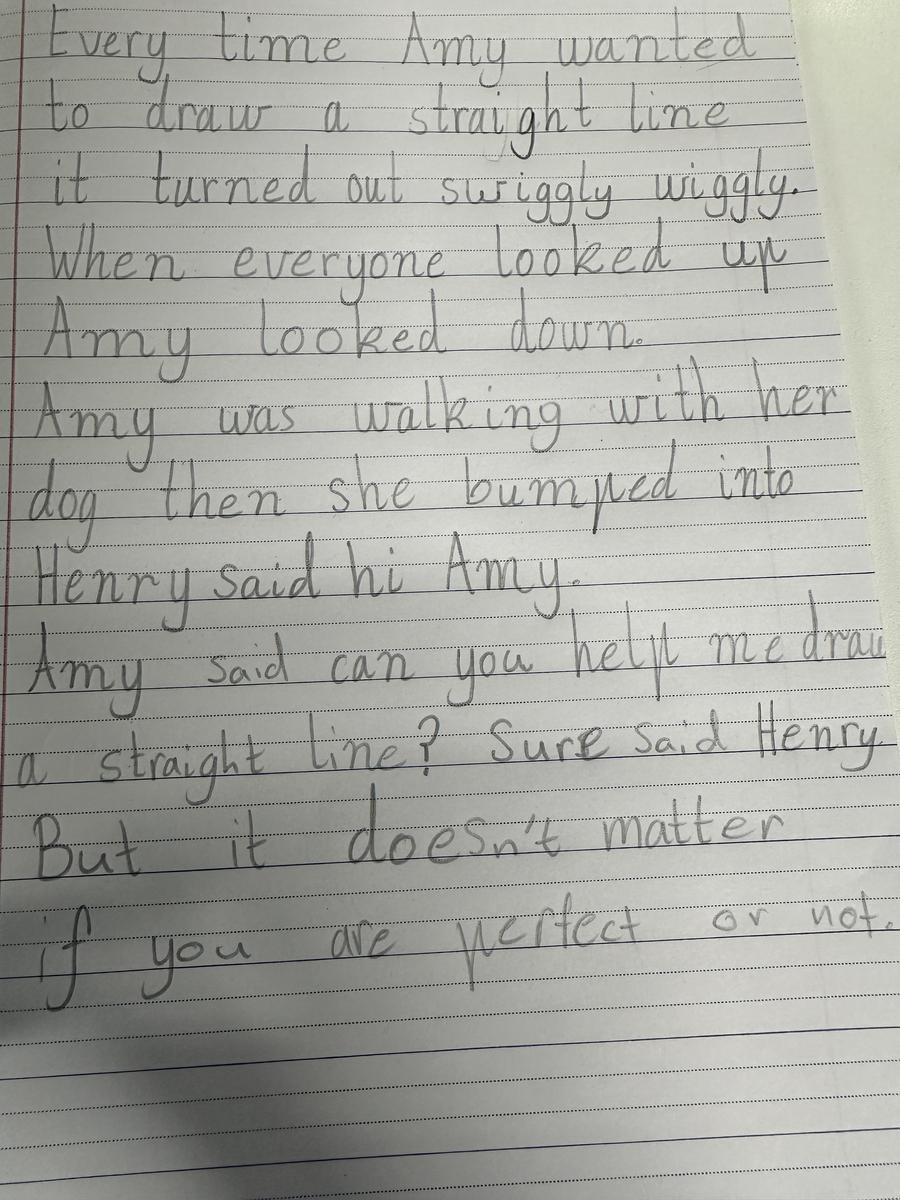 Every time Amy wanted
to draw a straight line
it turned out swriggly wiggly.
When everyone looked up
Amy looked down.
Amy was walking with her
dog then she bumped into
Henry said hi Amy.
Amy said can you help me draw
a straight line? Sure said Henry.
But it doesn't matter
if you are perfect or not.